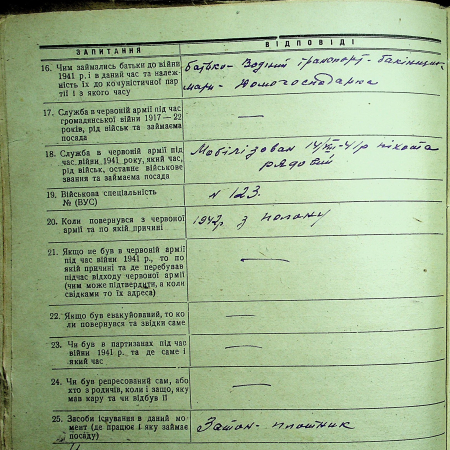 ЗАПИТАННЯ ВІДПОВІДІ
16. Чим займались батьки до війни
1941 р. і в даний час та належ-
ність їх до комуністичної пар-
тії і з якого часу
батько - Водний транспорт -
мати - домогосподарка
17. Служба в червоній армії під час
громадянської війни 1917—22
років, рід військ та займаєма
посада
—
18. Служба в червоній армії під
час війни 1941 року, який час,
рід військ, останнє військове
звання та займаєма посада
Мобілізован 14/VII-41р піхота
рядовий
19. Військова спеціальність
№ (ВУС)
№ 123.
20. Коли повернувся з червоної
армії та по якій причині
1942р з полону
21. Якщо не був в червоній армії
під час війни 1941 р., то по
якій причині та де перебував
підчас відходу червоної армії
(чим може підтвердити, а коли
свідками то їх адреса)
—
22. Якщо був евакуйований, то ко-
ли повернувся та звідки саме
—
23. Чи був в партизанах під час
війни 1941 р. та де саме і
який час
—
24. Чи був репресований сам, або
хто з родичів, коли і защо, яку
мав кару та чи відбув її
—
25. Засоби існування в даний мо-
мент (де працює і яку займає
посаду)
Затон - плотник